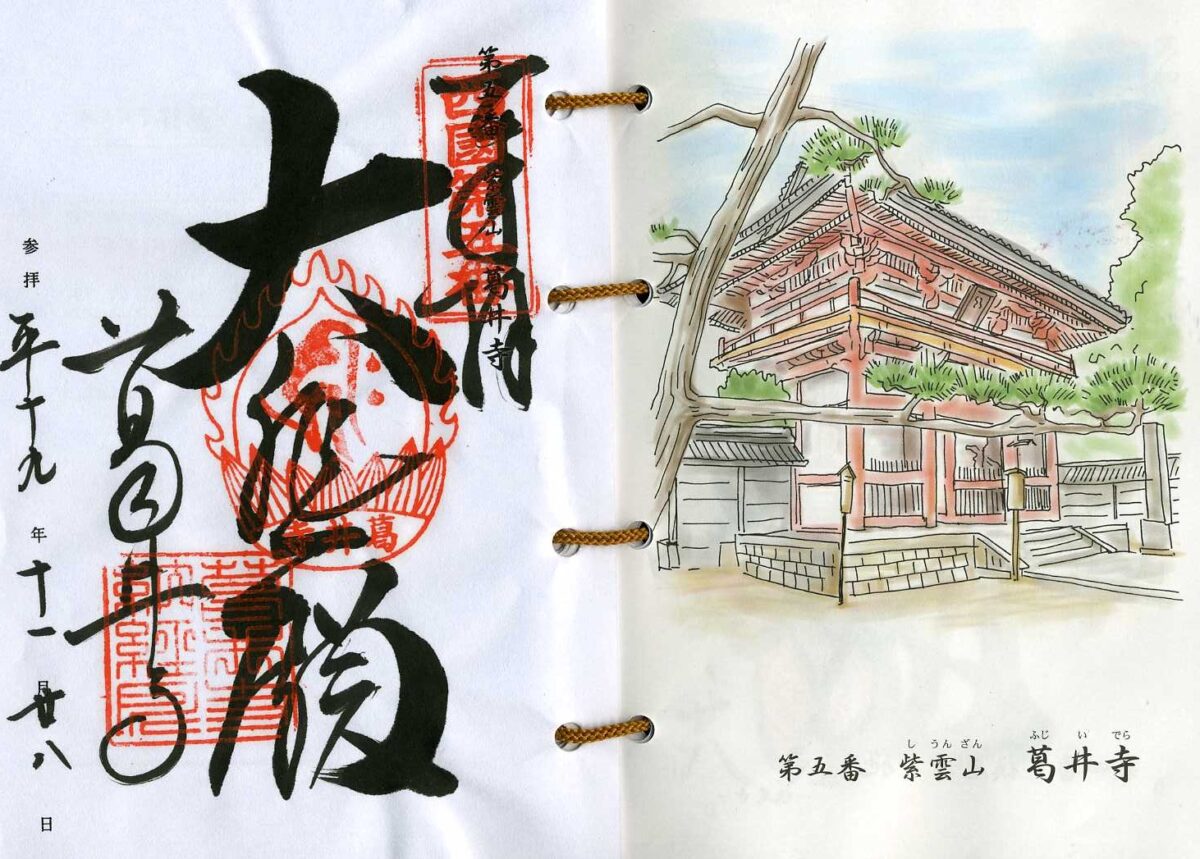 第五番 紫雲山 葛井寺
西國第五番
大悲殿
葛井寺
葛井寺
参拝 平十九年十一月廿八日
しうんざん ふじいでら
第五番 紫雲山 葛井寺